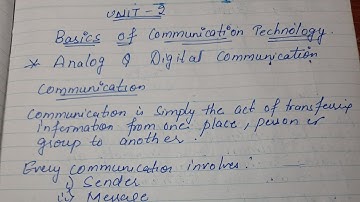 UNIT-2
Basics of Communication Technology.
* Analog & Digital Communication
Communication
Communication is simply the act of transferring
information from one place, person or
group to another.
Every communication involves:
i) Sender
ii) Message